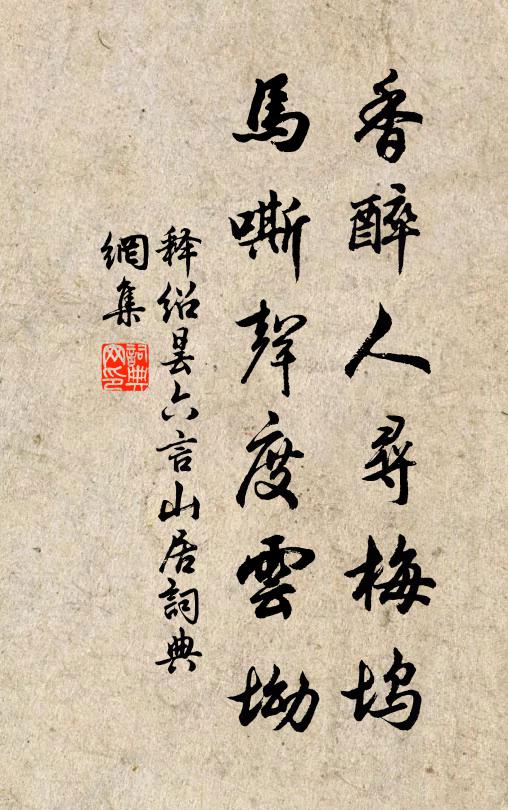 香醉人尋梅塢
馬嘶聲度雲坳
释紹曇六言山居詞典
網集
詞典
网印